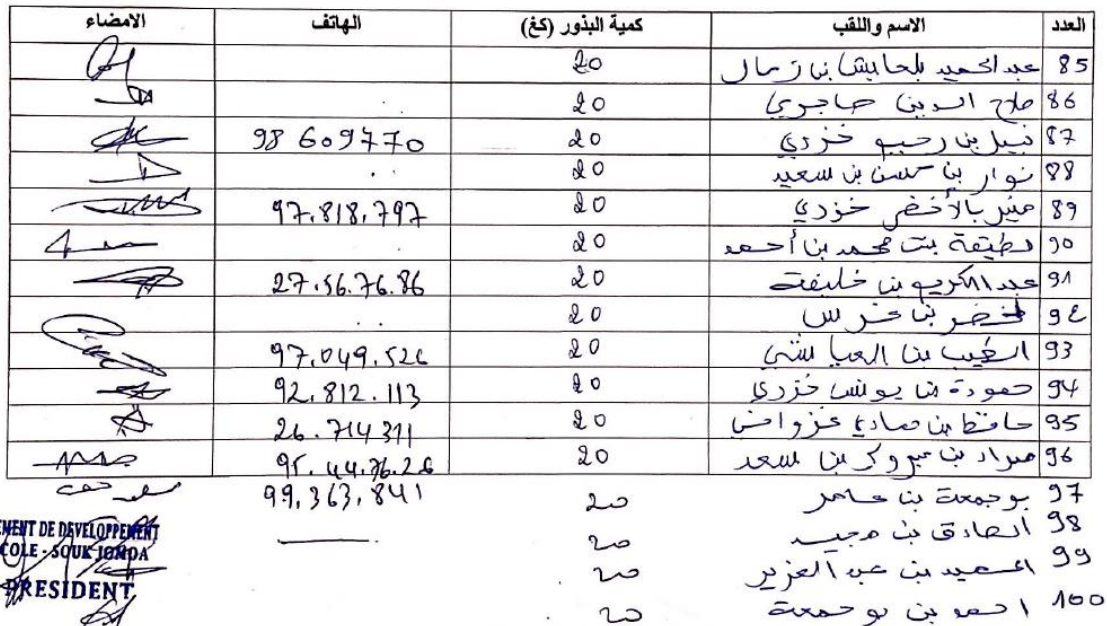 العدد الاسم واللقب كمية البذور (كغ) الهاتف الامضاء
85 عبد الحميد بلحايش بن زمال 20
86 صلاح الدين حاجري 20
87 نبيل بن رحيم خزري 20 98 609770
88 نوار بن حسن بن سعيد 20
89 منير بالأخضر خزري 20 97.818.797
90 لطيفة بنت محمد بن أحمد 20
91 عبد الكريم بن خليفة 20 27.56.76.86
92 لخضر بن 20
93 الطيب بن العياشي 20 97.049.526
94 حمودة بن يونس خزري 20 92.812.113
95 حافظ بن 20 26.714311
96 مراد بن مبروك بن سعد 20 95.44.76.26
97 بوجمعة بن عامر 20 99.363.841
98 الصادق بن 20
99 السعيد بن عبد العزيز 20
100 احمد بن بوجمعة 20
EMENT DE DEVELOPPEMENT
COLE - SOUK JOMDA
PRESIDENT